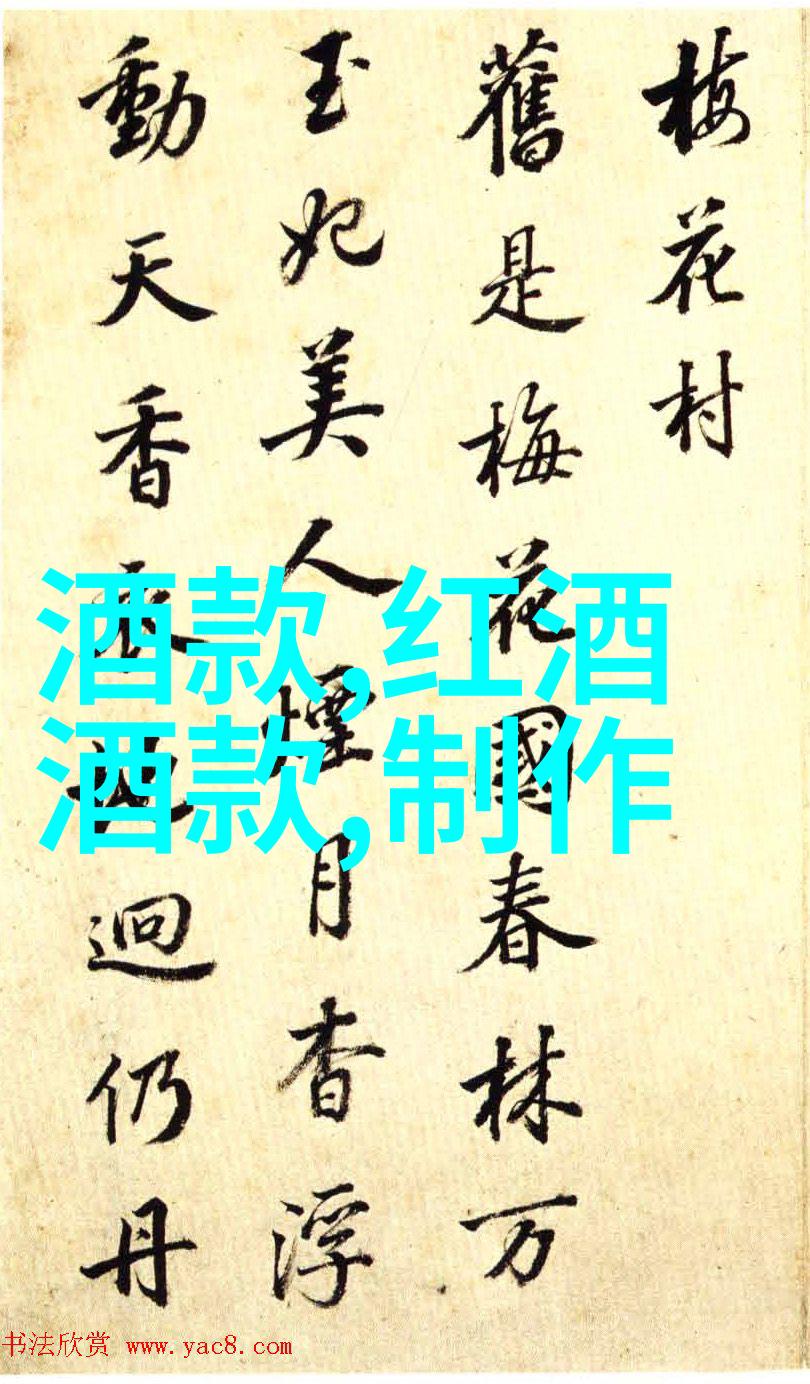 梅花村
舊是梅花國春林万
玉妃美人煙月杳浮
動天香來地迥仍丹
酒款,红酒
酒款,制作
书法欣赏 www.yac8.com